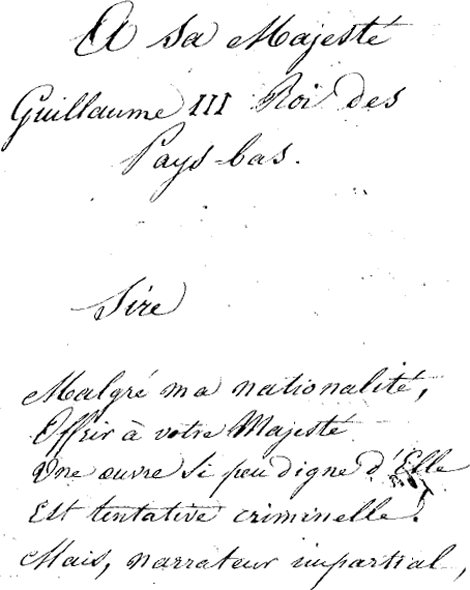 A sa Majesté
Guillaume III Roi des
Pays-bas.
Sire
Malgré ma nationalité,
Offrir à votre Majesté
Une œuvre si peu digne d'Elle
Est tentative criminelle.
Mais, narrateur impartial,